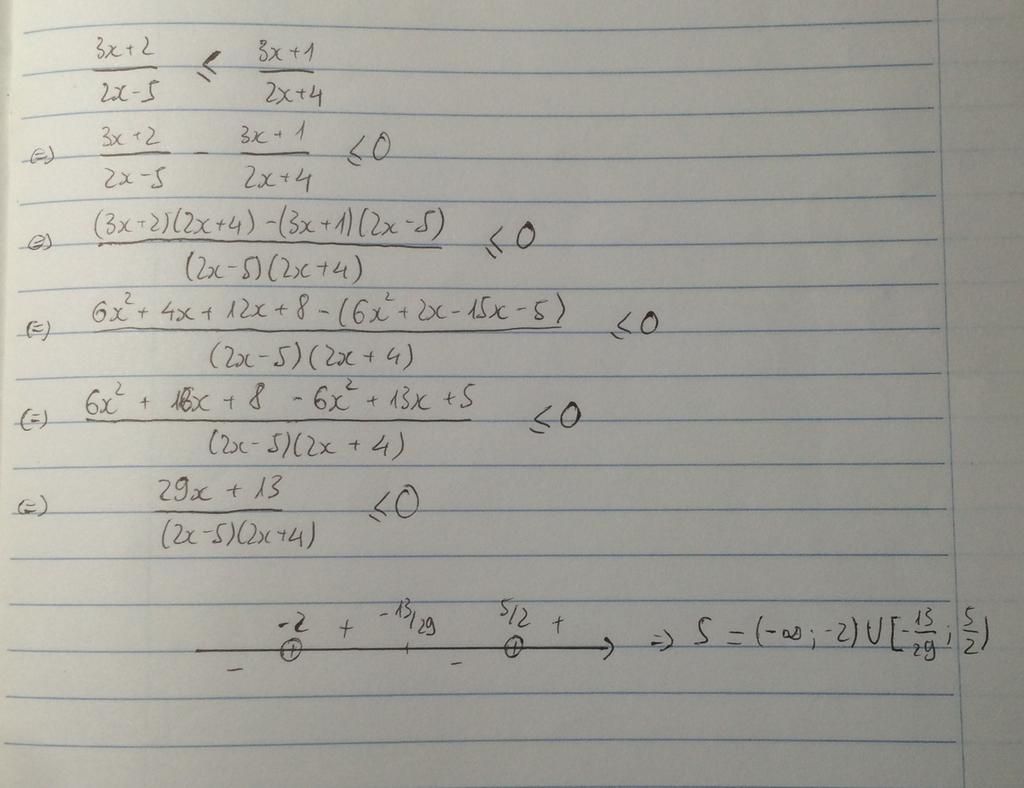 (3x+2)/(2x-5) ≤ (3x+1)/(2x+4)
(=) (3x+2)/(2x-5) - (3x+1)/(2x+4) ≤0
(=) ((3x+2)(2x+4)-(3x+1)(2x-5))/((2x-5)(2x+4)) ≤0
(=) (6x²+4x+12x+8-(6x²+2x-15x-5))/((2x-5)(2x+4)) ≤0
(=) (6x²+16x+8-6x²+13x+5)/((2x-5)(2x+4)) ≤0
(=) (29x+13)/((2x-5)(2x+4)) ≤0
-2 + -13/29 5/2 +
- - => S = (-∞; -2) U [-13/29; 5/2)